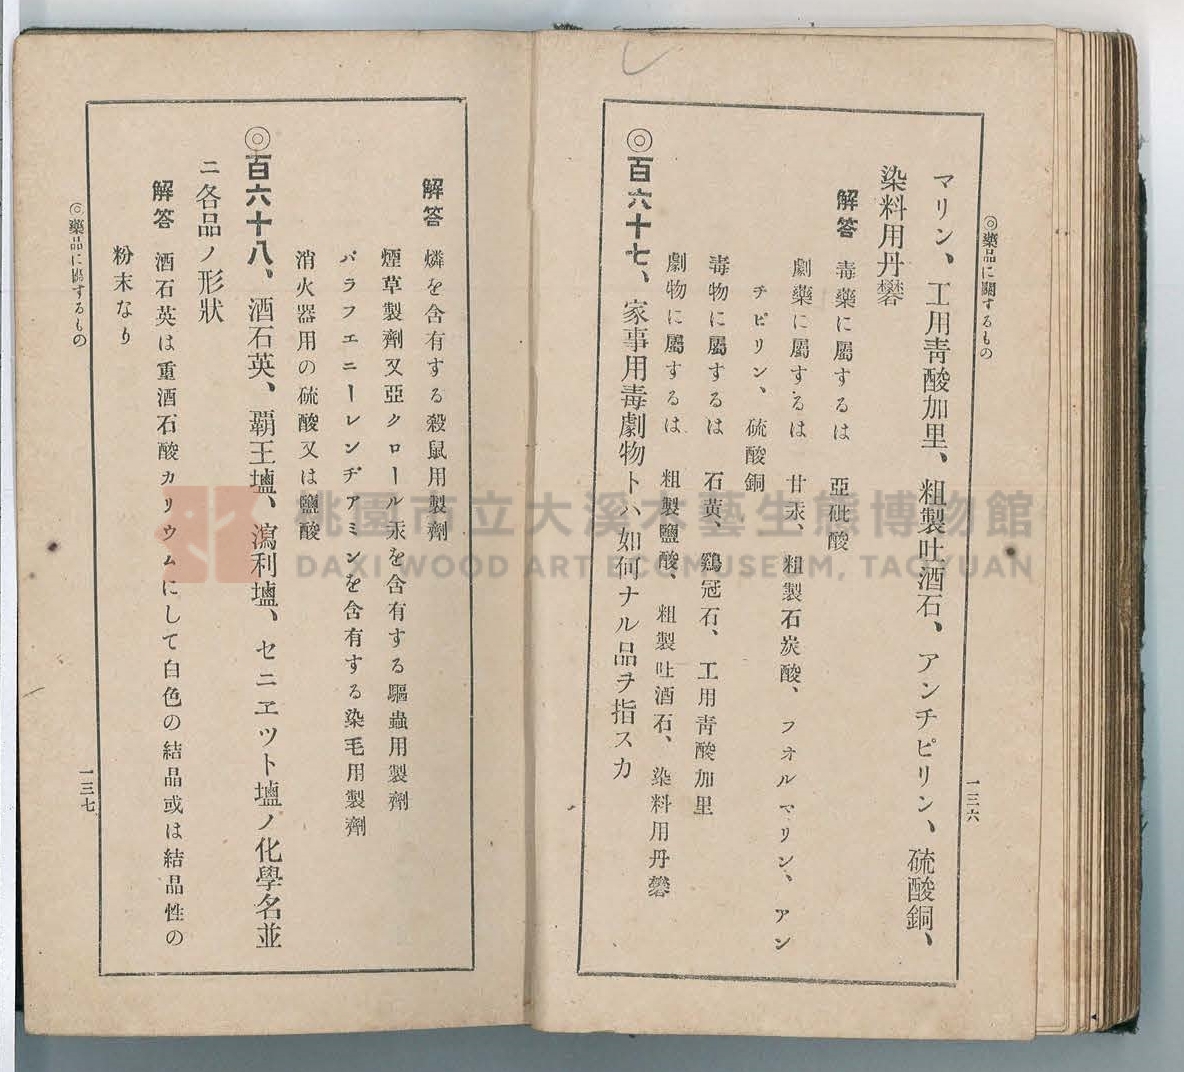 ◎藥品に關するもの
一三六
マリン、工用靑酸加里、粗製吐酒石、アンチピリン、硫酸銅、
染料用丹礬
解答 毒藥に屬するは 亞砒酸
劇藥に屬するは 甘汞、粗製石炭酸、フオルマリン、アン
チピリン、硫酸銅
毒物に屬するは 石黃、鷄冠石、工用靑酸加里
劇物に屬するは 粗製鹽酸、粗製吐酒石、染料用丹礬
◎百六十七、家事用毒劇物トハ如何ナル品ヲ指スカ
解答 燐を含有する殺鼠用製劑
煙草製劑又亞クロール汞を含有する驅蟲用製劑
パラフエニーレンヂアミンを含有する染毛用製劑
消火器用の硫酸又は鹽酸
◎百六十八、酒石英、覇王塩、瀉利塩、セニエツト塩ノ化學名並
ニ各品ノ形狀
解答 酒石英は重酒石酸カリウムにして白色の結晶或は結晶性の
粉末なり
◎藥品に關するもの
一三七
桃園市立大溪木藝生態博物館
DAXI WOOD ART ECOMUSEUM, TAOYUAN